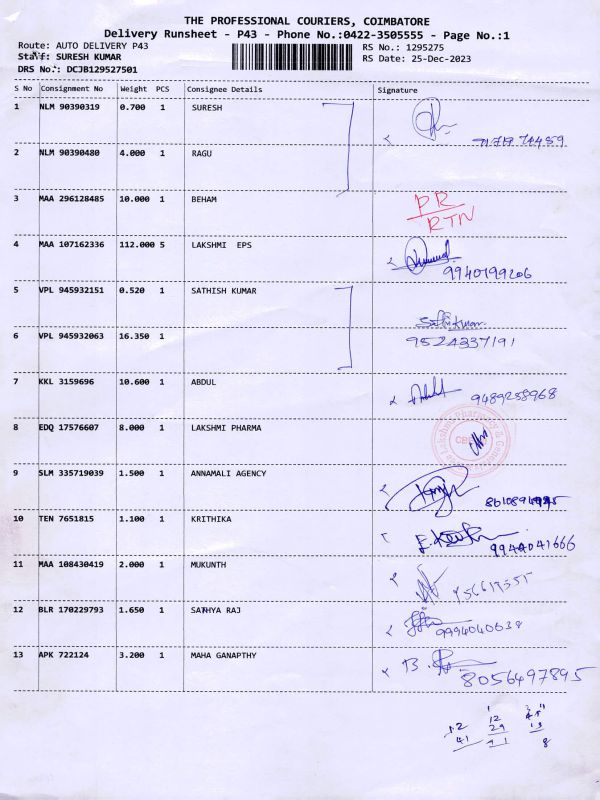 THE PROFESSIONAL COURIERS, COIMBATORE
Delivery Runsheet - P43 - Phone No.:0422-3505555 - Page No.:1
Route: AUTO DELIVERY P43 RS No.: 1295275
Staff: SURESH KUMAR RS Date: 25-Dec-2023
DRS No.: DCJB129527501
S No Consignment No Weight PCS Consignee Details Signature
1 NLM 90390319 0.700 1 SURESH
2 NLM 90390480 4.000 1 RAGU
3 MAA 296128485 10.000 1 BEHAM PR
RTN
4 MAA 107162336 112.000 5 LAKSHMI EPS
9940799206
5 VPL 945932151 0.520 1 SATHISH KUMAR
Sathiskumar
6 VPL 945932063 16.350 1 9524337191
7 KKL 3159696 10.600 1 ABDUL 9489258968
8 EDQ 17576607 8.000 1 LAKSHMI PHARMA
9 SLM 335719039 1.500 1 ANNAMALI AGENCY
10 TEN 7651815 1.100 1 KRITHIKA
9944041666
11 MAA 108430419 2.000 1 MUKUNTH
12 BLR 170229793 1.650 1 SATHYA RAJ
9994040639
13 APK 722124 3.200 1 MAHA GANAPTHY B.
8056497895
12
12 29 13
41 41 8